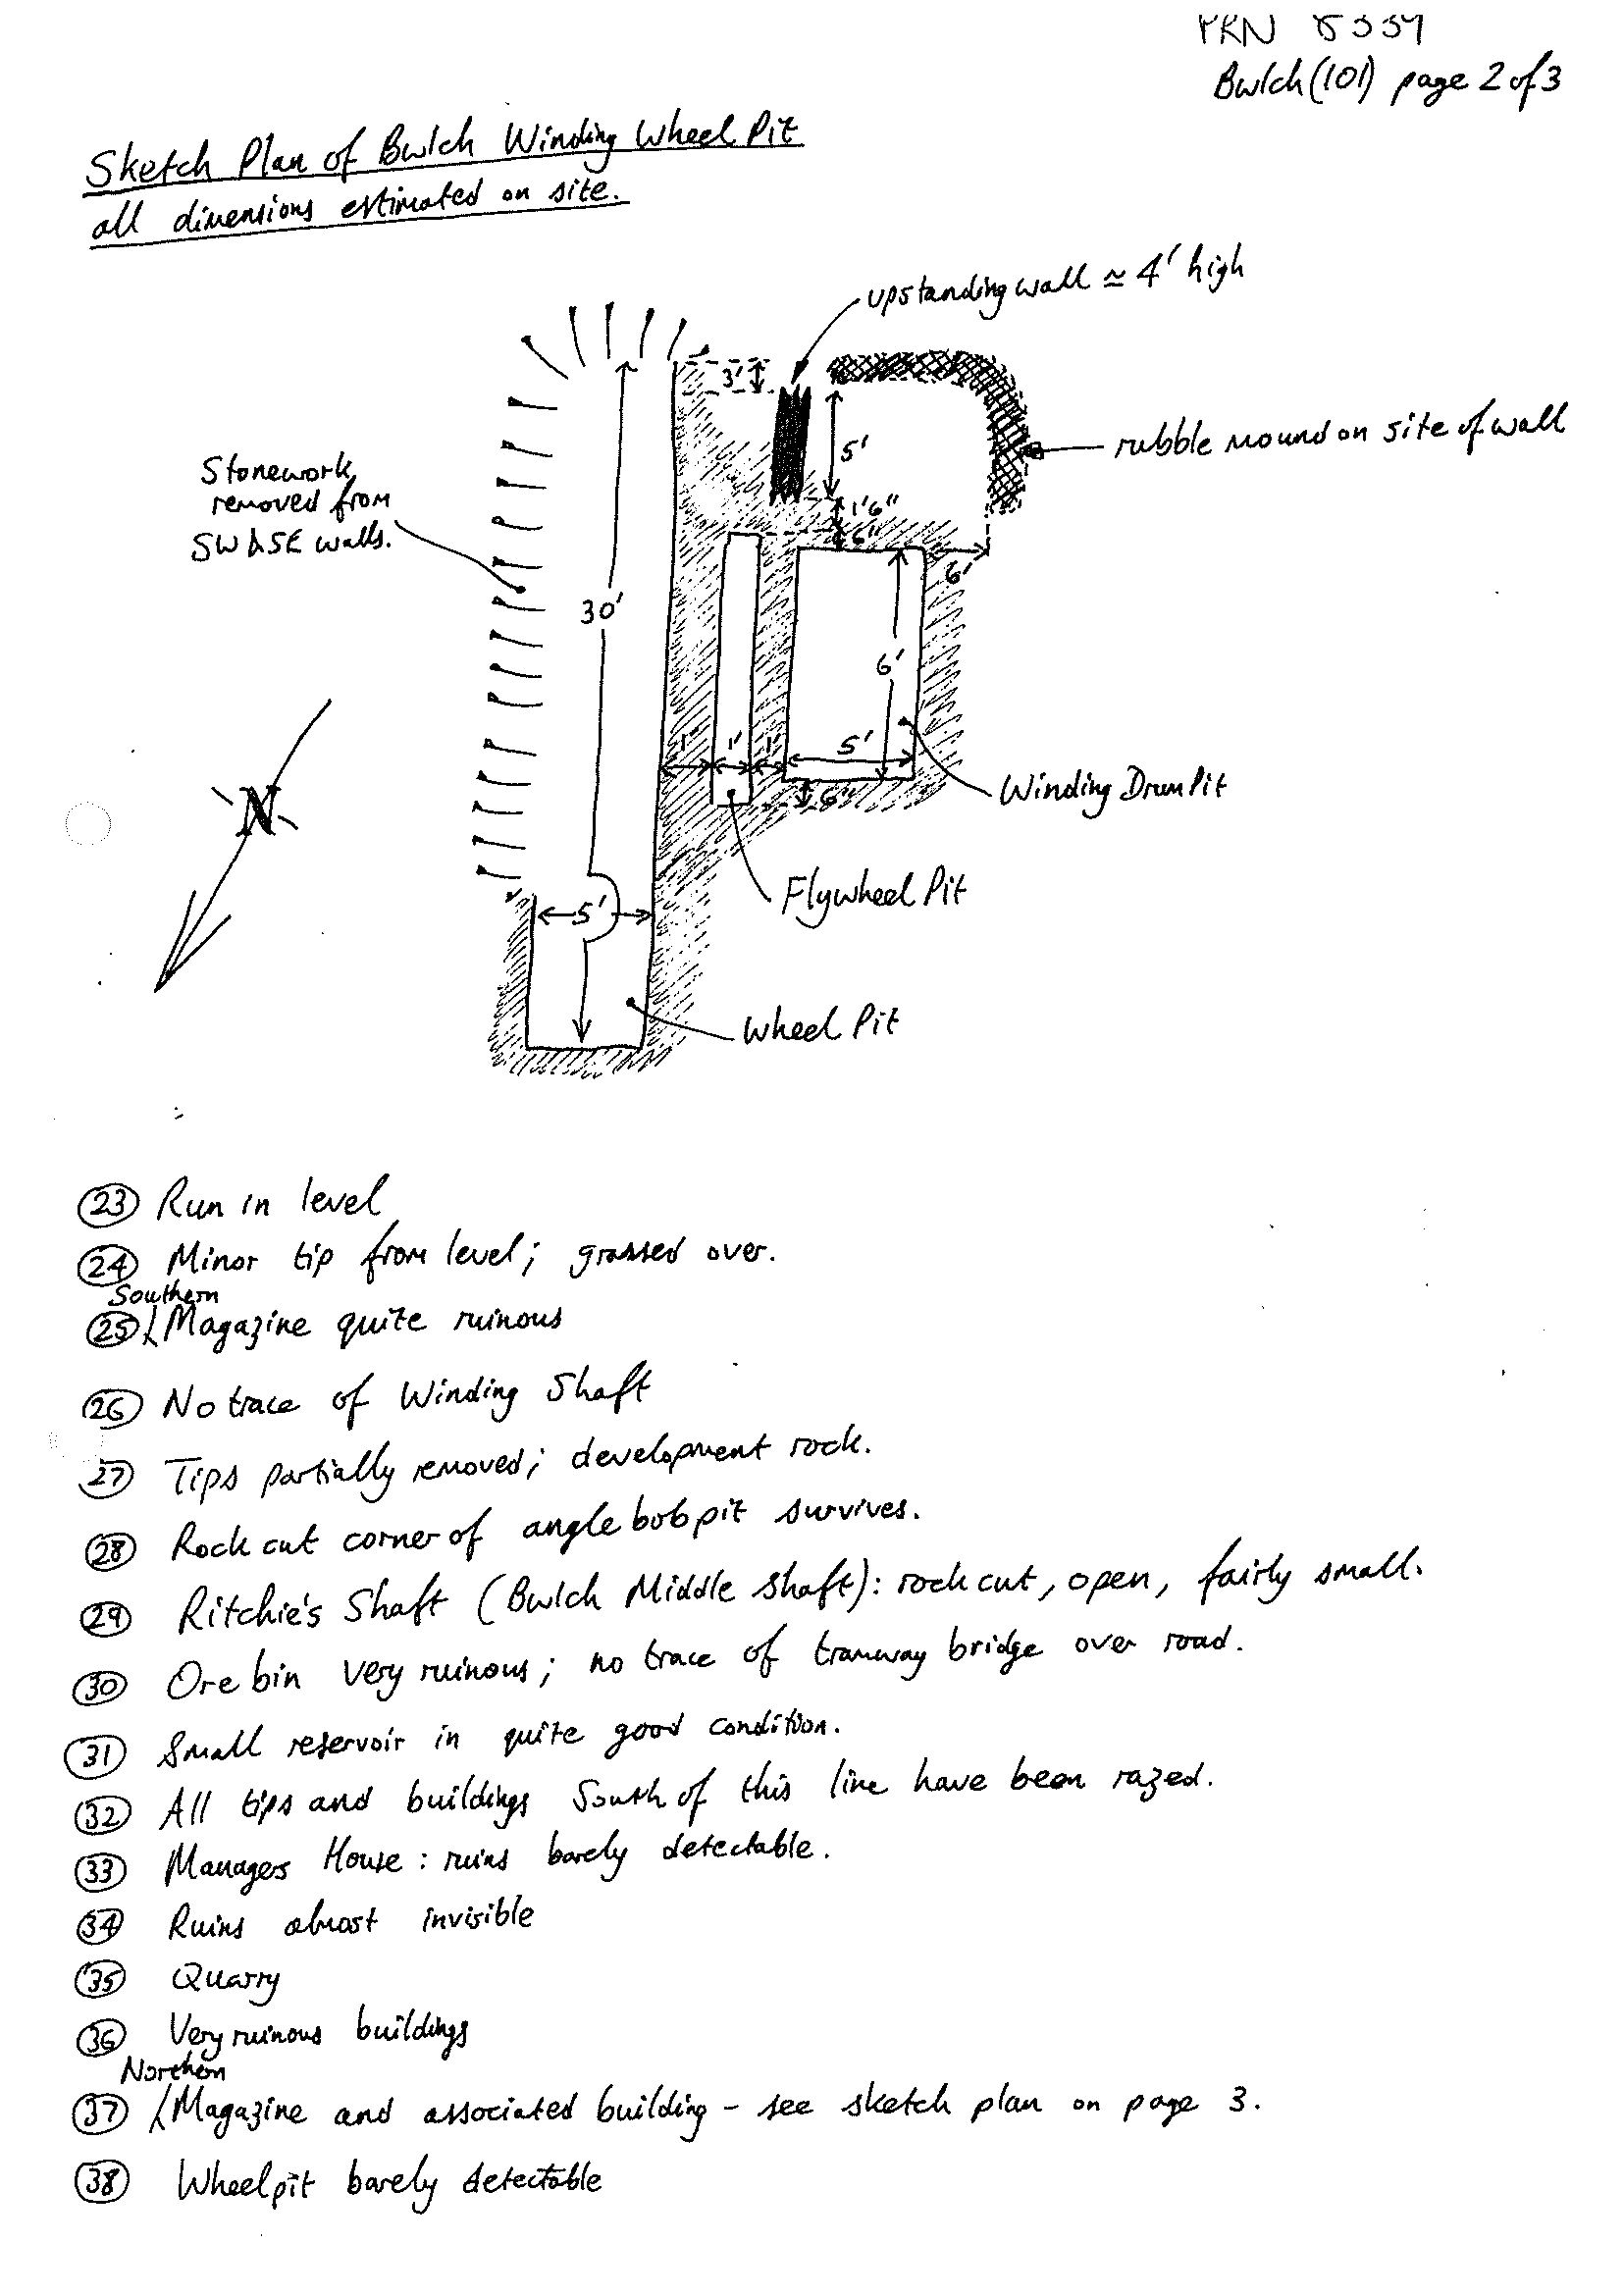 PRN 8339
Bwlch (101) page 2 of 3
Sketch Plan of Bwlch Winding Wheel Pit
all dimensions estimated on site.
upstanding wall ≃ 4' high
3'
5'
rubble mound on site of wall
Stonework
removed from
SW & SE walls.
1'6"
6"
6'
30'
6'
N
1'
1'
1'
5'
6"
Winding Drum Pit
Flywheel Pit
5'
Wheel Pit
23 Run in level
24 Minor tip from level; grassed over.
Southern
25 Magazine quite ruinous
26 No trace of Winding Shaft
27 Tips partially removed; development rock.
28 Rock cut corner of angle bob pit survives.
29 Ritchie's Shaft (Bwlch Middle Shaft): rock cut, open, fairly small.
30 Ore bin very ruinous; no trace of tramway bridge over road.
31 Small reservoir in quite good condition.
32 All tips and buildings South of this line have been razed.
33 Managers House: ruins barely detectable.
34 Ruins almost invisible
35 Quarry
36 Very ruinous buildings
Northern
37 Magazine and associated building - see sketch plan on page 3.
38 Wheelpit barely detectable